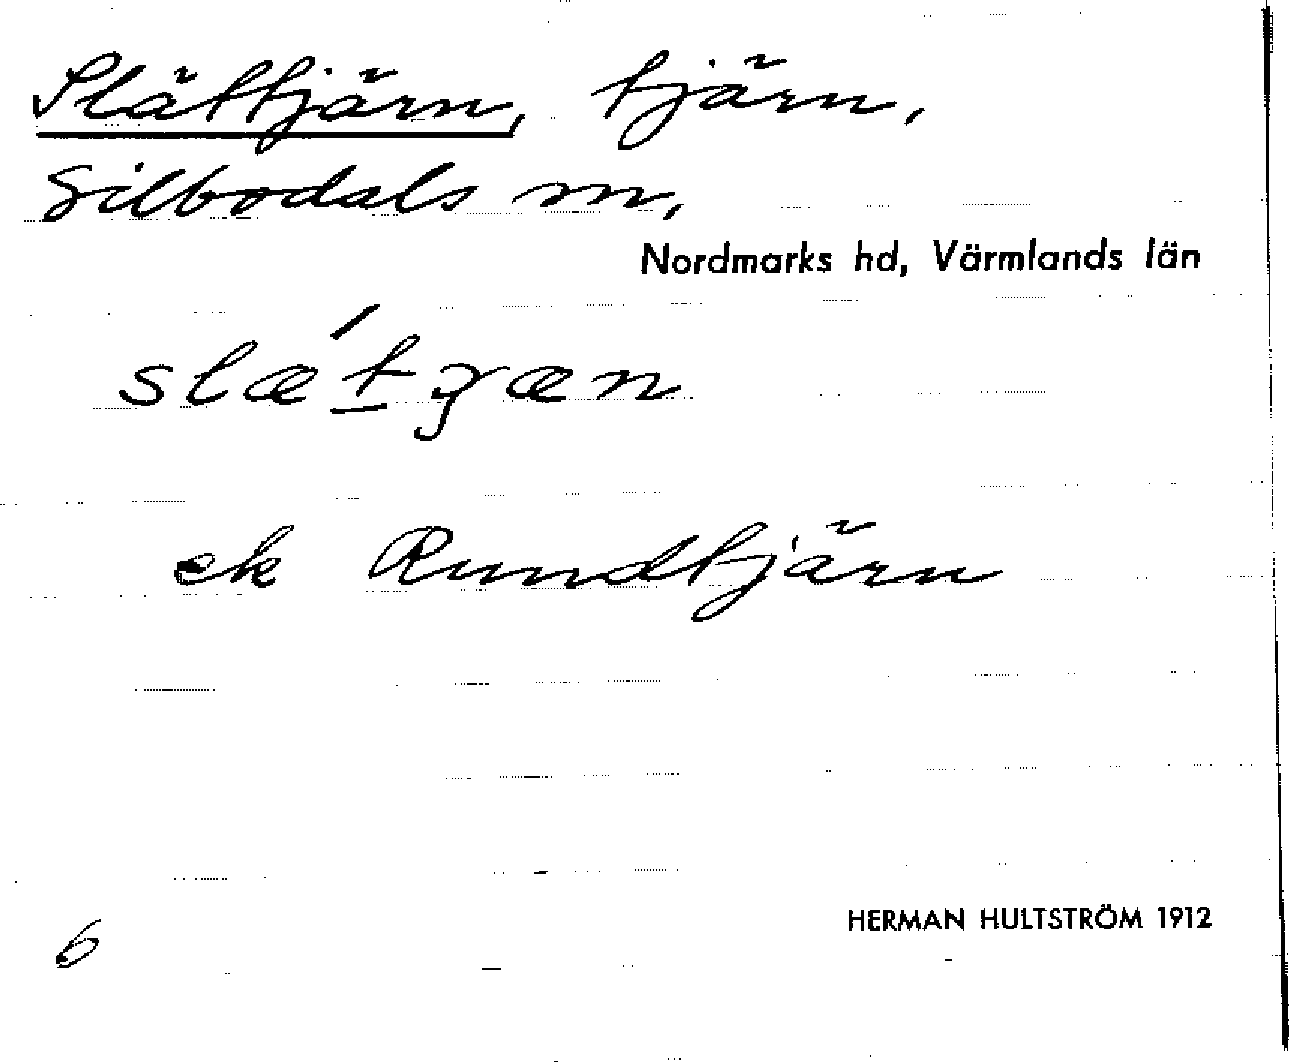 Slättjärn, tjärn,
Silbodals sn,
Nordmarks hd, Värmlands län
slǽtʒæn
ek Rundtjärn
6
HERMAN HULTSTRÖM 1912